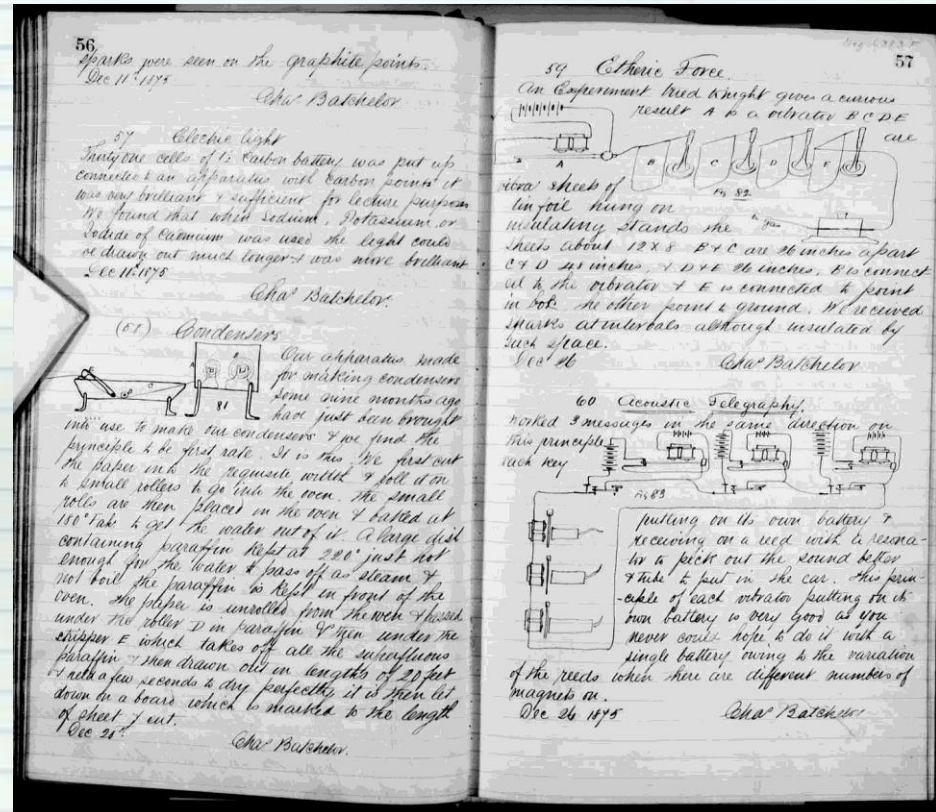 56
sparks were seen on the graphite points.
Dec 11th 1875
Chas Batchelor
57 Electric light
Thirty one cells of the Carbon battery was put up
connected to an apparatus with carbon points it
was very brilliant & sufficient for lecture purposes
We found that when Sodium, Potassium or
Iodide of Cadmium was used the light could
be drawn out much longer & was more brilliant
Dec 11th 1875
Chas Batchelor.
(58) Condensers
81
Our apparatus made
for making condensers
some nine months ago
have just been brought
into use to make our condensers & we find the
principle to be first rate. It is this. We first cut
the paper into the requisite width & roll it on
to small rollers to go into the oven. The small
rolls are then placed in the oven & baked at
180° Fah to get the water out of it. A large dish
containing paraffin kept at 220° just hot
enough for the water to pass off as steam &
not boil the paraffin is kept in front of the
oven. The paper is unrolled from the oven & passed
under the roller D in paraffin & then under the
scraper E which takes off all the superfluous
paraffin & then drawn out in lengths of 20 feet
& held a few seconds to dry perfectly it is then let
down on a board which is marked to the length
of sheet & cut.
Dec 20th
Chas Batchelor.
57
59 Etheric Force.
An Experiment tried tonight gives a curious
result A is a vibrator B C D E
are
A B C D E
Fig 82
sheets of
tin foil hung on
insulating stands the
gas
sheets about 12 X 8 B & C are 26 inches apart
C & D 48 inches, & D & E 26 inches. B is connect
ed to the vibrator & E is connected to point
in box the other point to ground. We received
sparks at intervals although insulated by
such space.
Dec 26
Chas Batchelor
60 Acoustic Telegraphy.
Worked 3 messages in the same direction on
this principle
each key
Fig 83
putting on its own battery &
receiving on a reed with a resona-
tor to pick out the sound better
& tube to put in the ear. This prin-
-ciple of each vibrator putting on its
own battery is very good as you
never could hope to do it with a
single battery owing to the variation
of the reeds when there are different numbers of
magnets on.
Dec 26 1875
Chas Batchelor